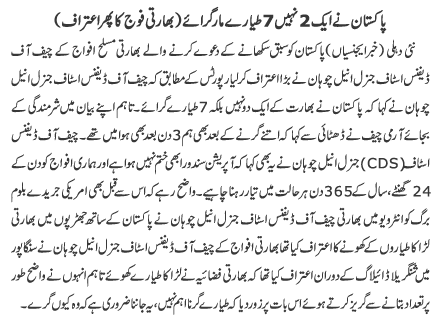 پاکستان نے ایک 2 نہیں 7 طیارے مار گرائے (بھارتی فوج کا پھر اعتراف)
نئی دہلی (خبر ایجنسیاں) پاکستان کو سبق سکھانے کے دعوے کرنے والے بھارتی مسلح افواج کے چیف آف
ڈیفنس اسٹاف جنرل انیل چوہان نے بڑا اعتراف کرلیا رپورٹس کے مطابق کہ چیف آف ڈیفنس اسٹاف جنرل انیل
چوہان نے کہا کہ پاکستان نے بھارت کے ایک دو نہیں بلکہ 7 طیارے گرائے۔ تاہم اپنے بیان میں شرمندگی کے
بجائے آرمی چیف نے ڈھٹائی سے کہا کہ اتنے گرنے کے بعد بھی ہم 3 دن بعد بھی ہوا میں تھے۔ چیف آف ڈیفنس
اسٹاف (CDS) جنرل انیل چوہان نے یہ بھی کہا کہ آپریشن سندور ابھی ختم نہیں ہوا ہے اور ہماری افواج کو دن کے
24 گھنٹے، سال کے 365 دن ہر حالت میں تیار رہنا چاہیے۔ واضح رہے کہ اس سے قبل بھی امریکی جریدے بلوم
برگ کو انٹرویو میں بھارتی چیف آف ڈیفنس اسٹاف جنرل انیل چوہان نے پاکستان کے ساتھ جھڑپوں میں بھارتی
لڑاکا طیاروں کے کھونے کا اعتراف کیا تھا بھارتی افواج کے چیف آف ڈیفنس اسٹاف جنرل انیل چوہان نے سنگاپور
میں شنگریلا ڈائیلاگ کے دوران اعتراف کیا تھا کہ بھارتی فضائیہ نے لڑاکا طیارے کھوئے تاہم انہوں نے واضح طور
پر تعداد بتانے سے گریز کرتے ہوئے اس بات پر زور دیا کہ طیارے گرنا اہم نہیں، یہ جاننا ضروری ہے کہ وہ کیوں گرے۔